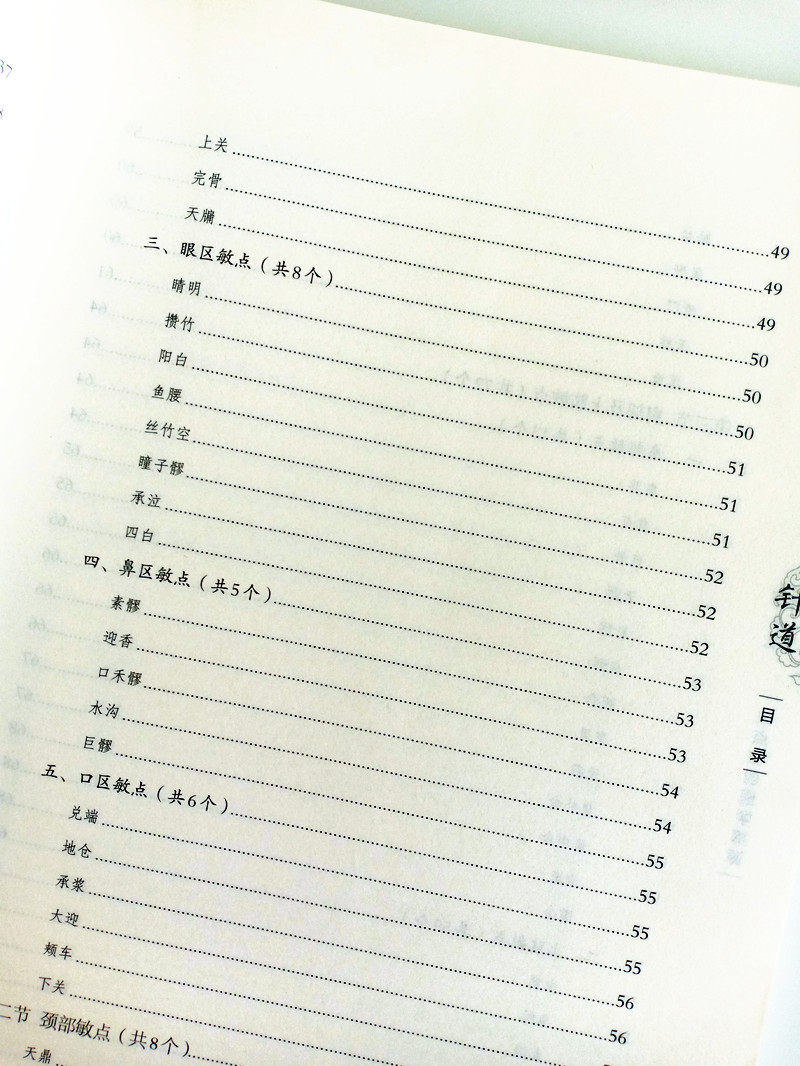 上关 49
完骨 49
天牖 49
三、眼区敏点（共8个） 50
睛明 50
攒竹 50
阳白 51
鱼腰 51
丝竹空 51
瞳子髎 52
承泣 52
四白 52
四、鼻区敏点（共5个） 53
素髎 53
迎香 53
口禾髎 54
水沟 54
巨髎 55
五、口区敏点（共6个） 55
兑端 55
地仓 55
承浆 56
大迎 56
颊车
下关
二节 颈部敏点（共8个）
天鼎
针道
目录